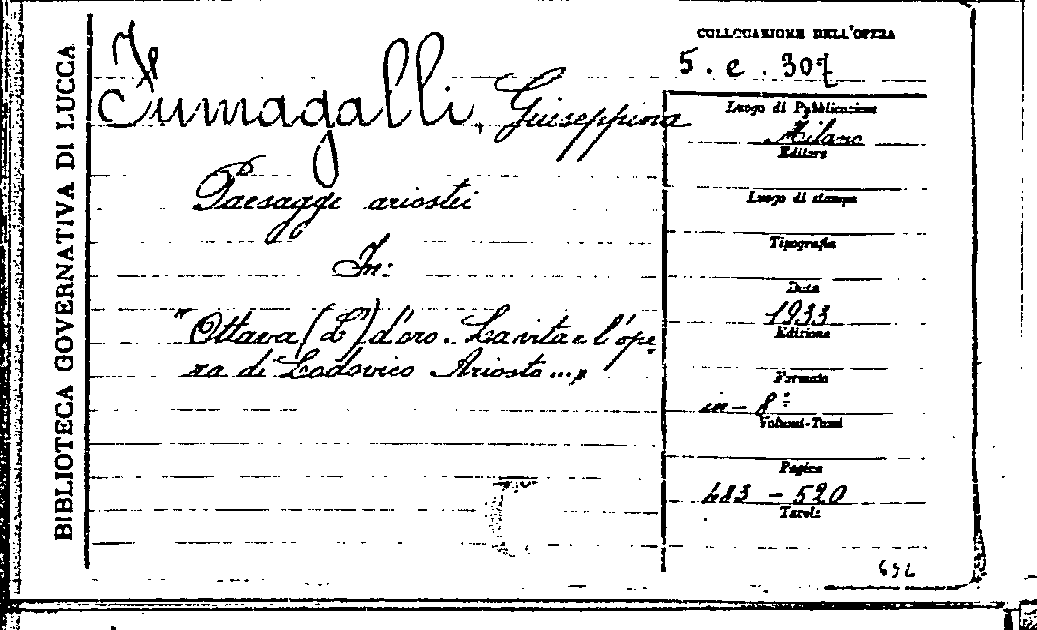 BIBLIOTECA GOVERNATIVA DI LUCCA
Fumagalli, Giuseppina
Paesaggi ariostei
In:
"Ottava (L') d'oro. La vita e l'ope-
ra di Lodovico Ariosto..."
COLLOCAZIONE DELL'OPERA
5. e. 307
Luogo di Pubblicazione
Milano
Editore
Luogo di stampa
Tipografia
Data
1933
Edizione
Formato
in-8º
Volumi-Tomi
Pagine
483 - 520
Tavole